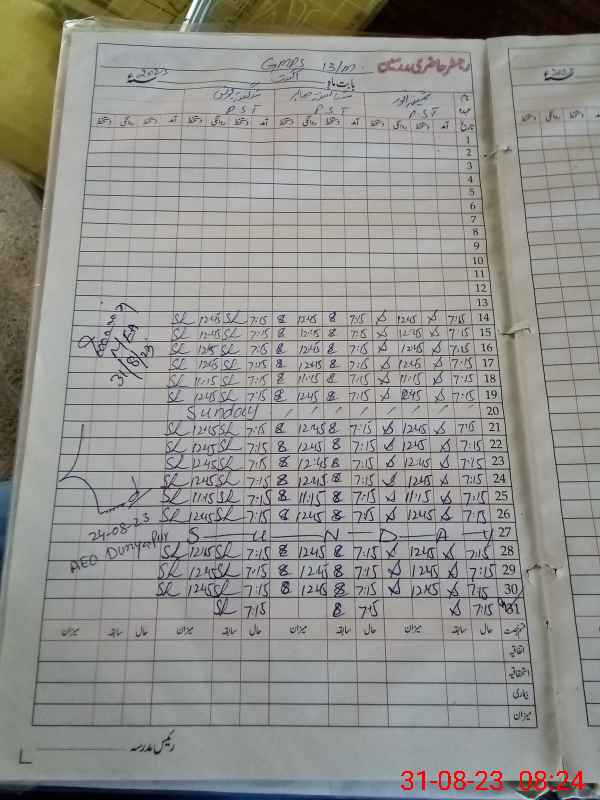 رجسٹر حاضری مدرسین GMPS 13/M. 2023ء
بابت ماہ اگست
P.S.T P.S.T P.S.T
تاریخ آمد دستخط روانگی دستخط آمد دستخط روانگی دستخط آمد دستخط روانگی دستخط
1
2
3
4
5
6
7
8
9
10
11
12
13
14 7:15 12:45 7:15 8 12:45 8 7:15 SL 12:45 SL
15 7:15 12:45 7:15 8 12:45 8 7:15 SL 12:45 SL
16 7:15 12:45 7:15 8 12:45 8 7:15 SL 12:45 SL
17 7:15 12:45 7:15 8 12:45 8 7:15 SL 12:45 SL
18 7:15 11:15 7:15 8 11:15 8 7:15 SL 11:15 SL
19 7:15 12:45 7:15 8 12:45 8 7:15 SL 12:45 SL
20 Sunday
21 7:15 12:45 7:15 8 12:45 8 7:15 SL 12:45 SL
22 7:15 12:45 7:15 8 12:45 8 7:15 SL 12:45 SL
23 7:15 12:45 7:15 8 12:45 8 7:15 SL 12:45 SL
24 7:15 12:45 7:15 8 12:45 8 7:15 SL 12:45 SL
25 7:15 11:15 7:15 8 11:15 8 7:15 SL 11:15 SL
26 7:15 12:45 7:15 8 12:45 8 7:15 SL 12:45 SL
27 SUNDAY
28 7:15 12:45 7:15 8 12:45 8 7:15 SL 12:45 SL
29 7:15 12:45 7:15 8 12:45 8 7:15 SL 12:45 SL
30 7:15 12:45 7:15 8 12:45 8 7:15 SL 12:45 SL
31 7:15 7:15 8 7:15 SL
31/8/23
24-08-23
AEO Dunyapur
حال سابقہ میزان حال سابقہ میزان حال سابقہ میزان
اتفاقیہ
استحقاقیہ
بیماری
میزان
رئیس مدرسہ
2023ء
31-08-23 08:24